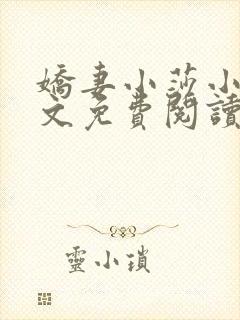 嬌妻小莎小
文免費閱讀
靈小瑣